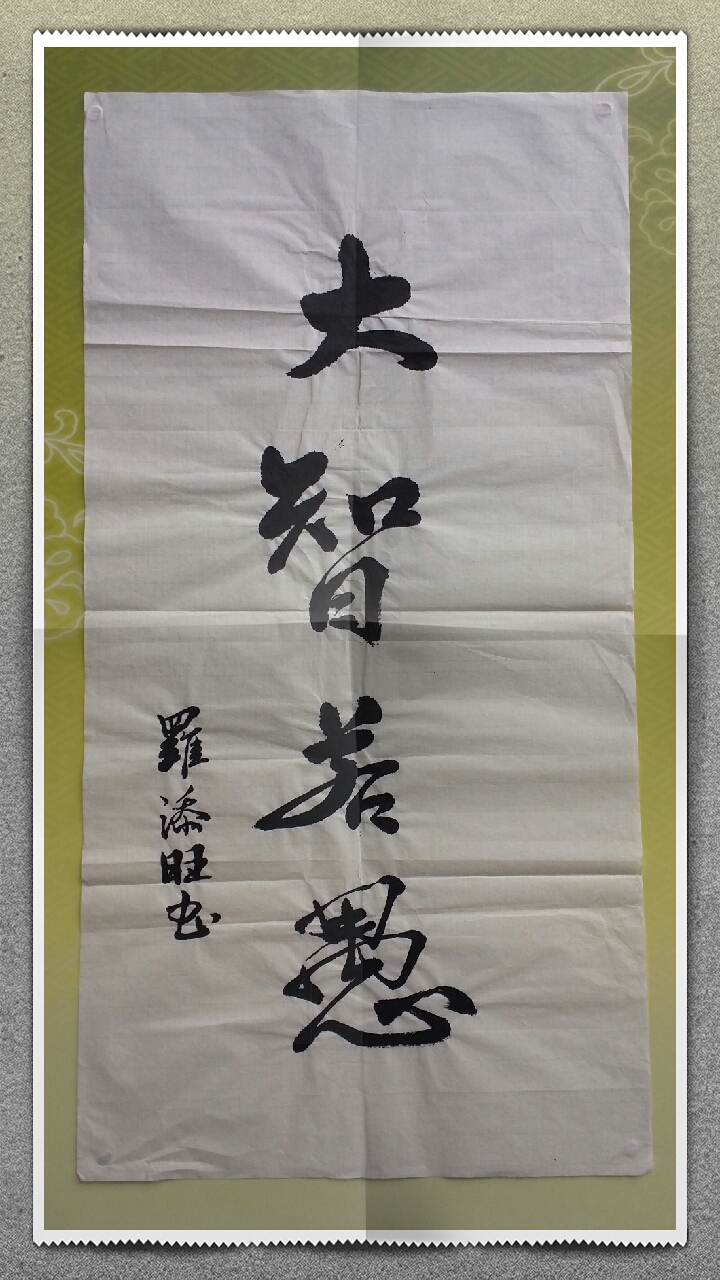 大智若愚
羅添旺书